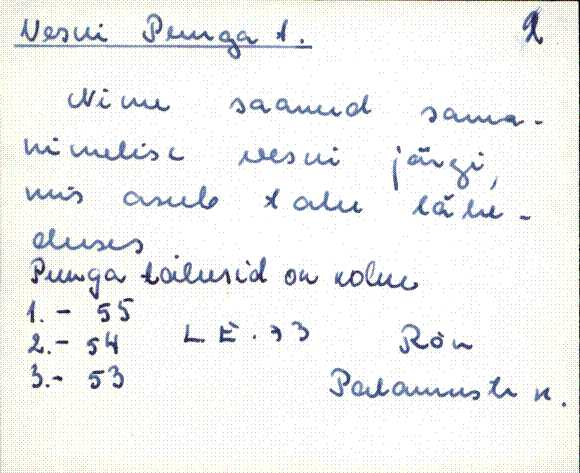 Veski Punga t. 2
Nime saanud sama-
nimelise veski järgi,
mis asub talu lähe-
duses
Punga talusid on kolm
1.- 55
2.- 54 LE.73 Rõn
3.- 53 Palamuste k.